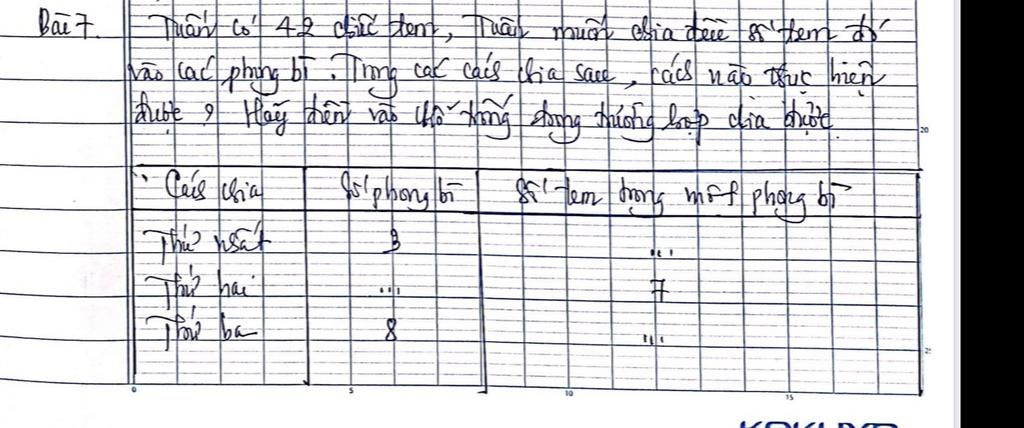 Bài 7. Tuấn có 42 chiếc tem, Tuấn muốn chia đều số tem đó
vào các phong bì. Trong các cách chia sau, cách nào thực hiện
được? Hãy điền vào chỗ trống trong trường hợp chia được.
20
Cách chia Số phong bì Số tem trong một phong bì
Thứ nhất 3 ...
Thứ hai ... 7
Thứ ba 8 ...
0 5 10 15